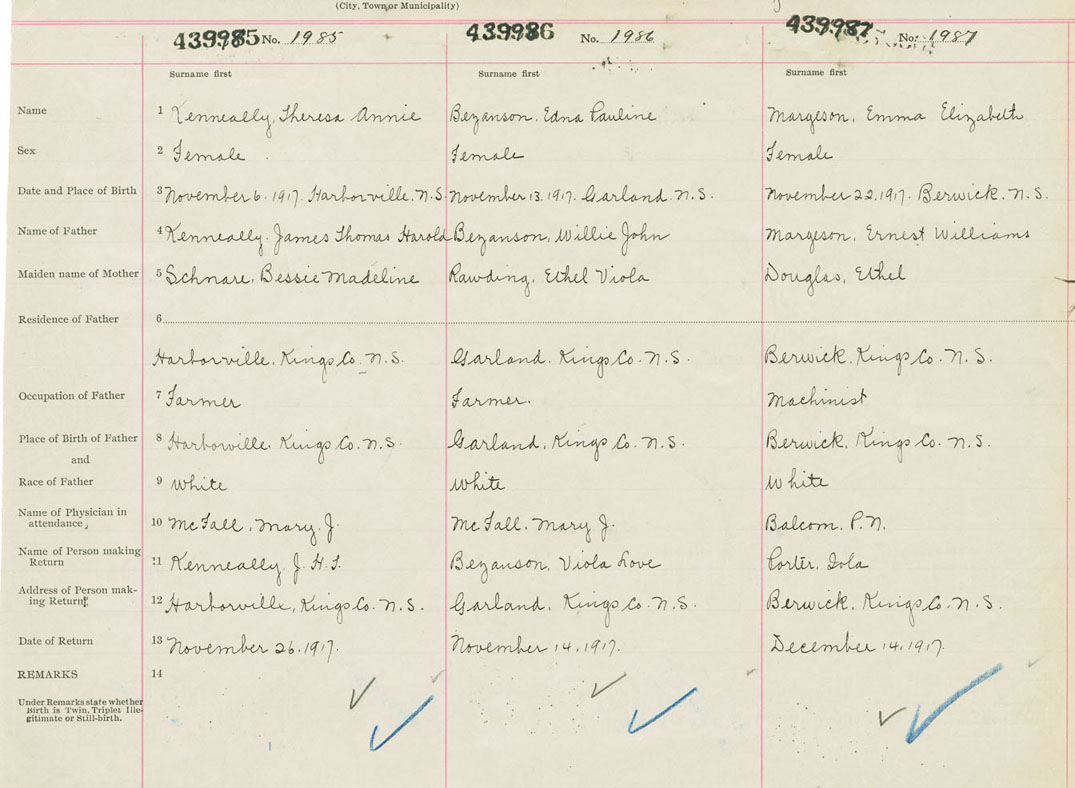 (City, Town or Municipality)
439985 No. 1985 439986 No. 1986 439987 No. 1987
Surname first Surname first Surname first
Name 1 Kenneally, Theresa Annie Bezanson, Edna Pauline Margeson, Emma Elizabeth
Sex 2 Female Female Female
Date and Place of Birth 3 November 6. 1917. Harborville. N.S. November 13. 1917. Garland. N.S. November 22. 1917. Berwick. N.S.
Name of Father 4 Kenneally. James Thomas Harold Bezanson, Willie John Margeson, Ernest Williams
Maiden name of Mother 5 Schnare, Bessie Madeline Rawding, Ethel Viola Douglas, Ethel
Residence of Father 6
Harborville. Kings Co. N.S. Garland. Kings Co. N.S. Berwick. Kings Co. N.S.
Occupation of Father 7 Farmer Farmer. Machinist
Place of Birth of Father 8 Harborville. Kings Co. N.S. Garland, Kings Co. N.S. Berwick. Kings Co. N.S.
and
Race of Father 9 White White White
Name of Physician in
attendance 10 McFall, Mary. J. McFall. Mary J. Balcom, P.N.
Name of Person making
Return 11 Kenneally. J. H. T. Bezanson, Viola Love Porter, Iola
Address of Person mak-
ing Return 12 Harborville, Kings Co. N.S. Garland, Kings Co. N.S. Berwick. Kings Co. N.S.
Date of Return 13 November 26. 1917. November 14. 1917. December 14. 1917.
REMARKS 14
Under Remarks state whether
Birth is Twin, Triplet Ille-
gitimate or Still-birth.